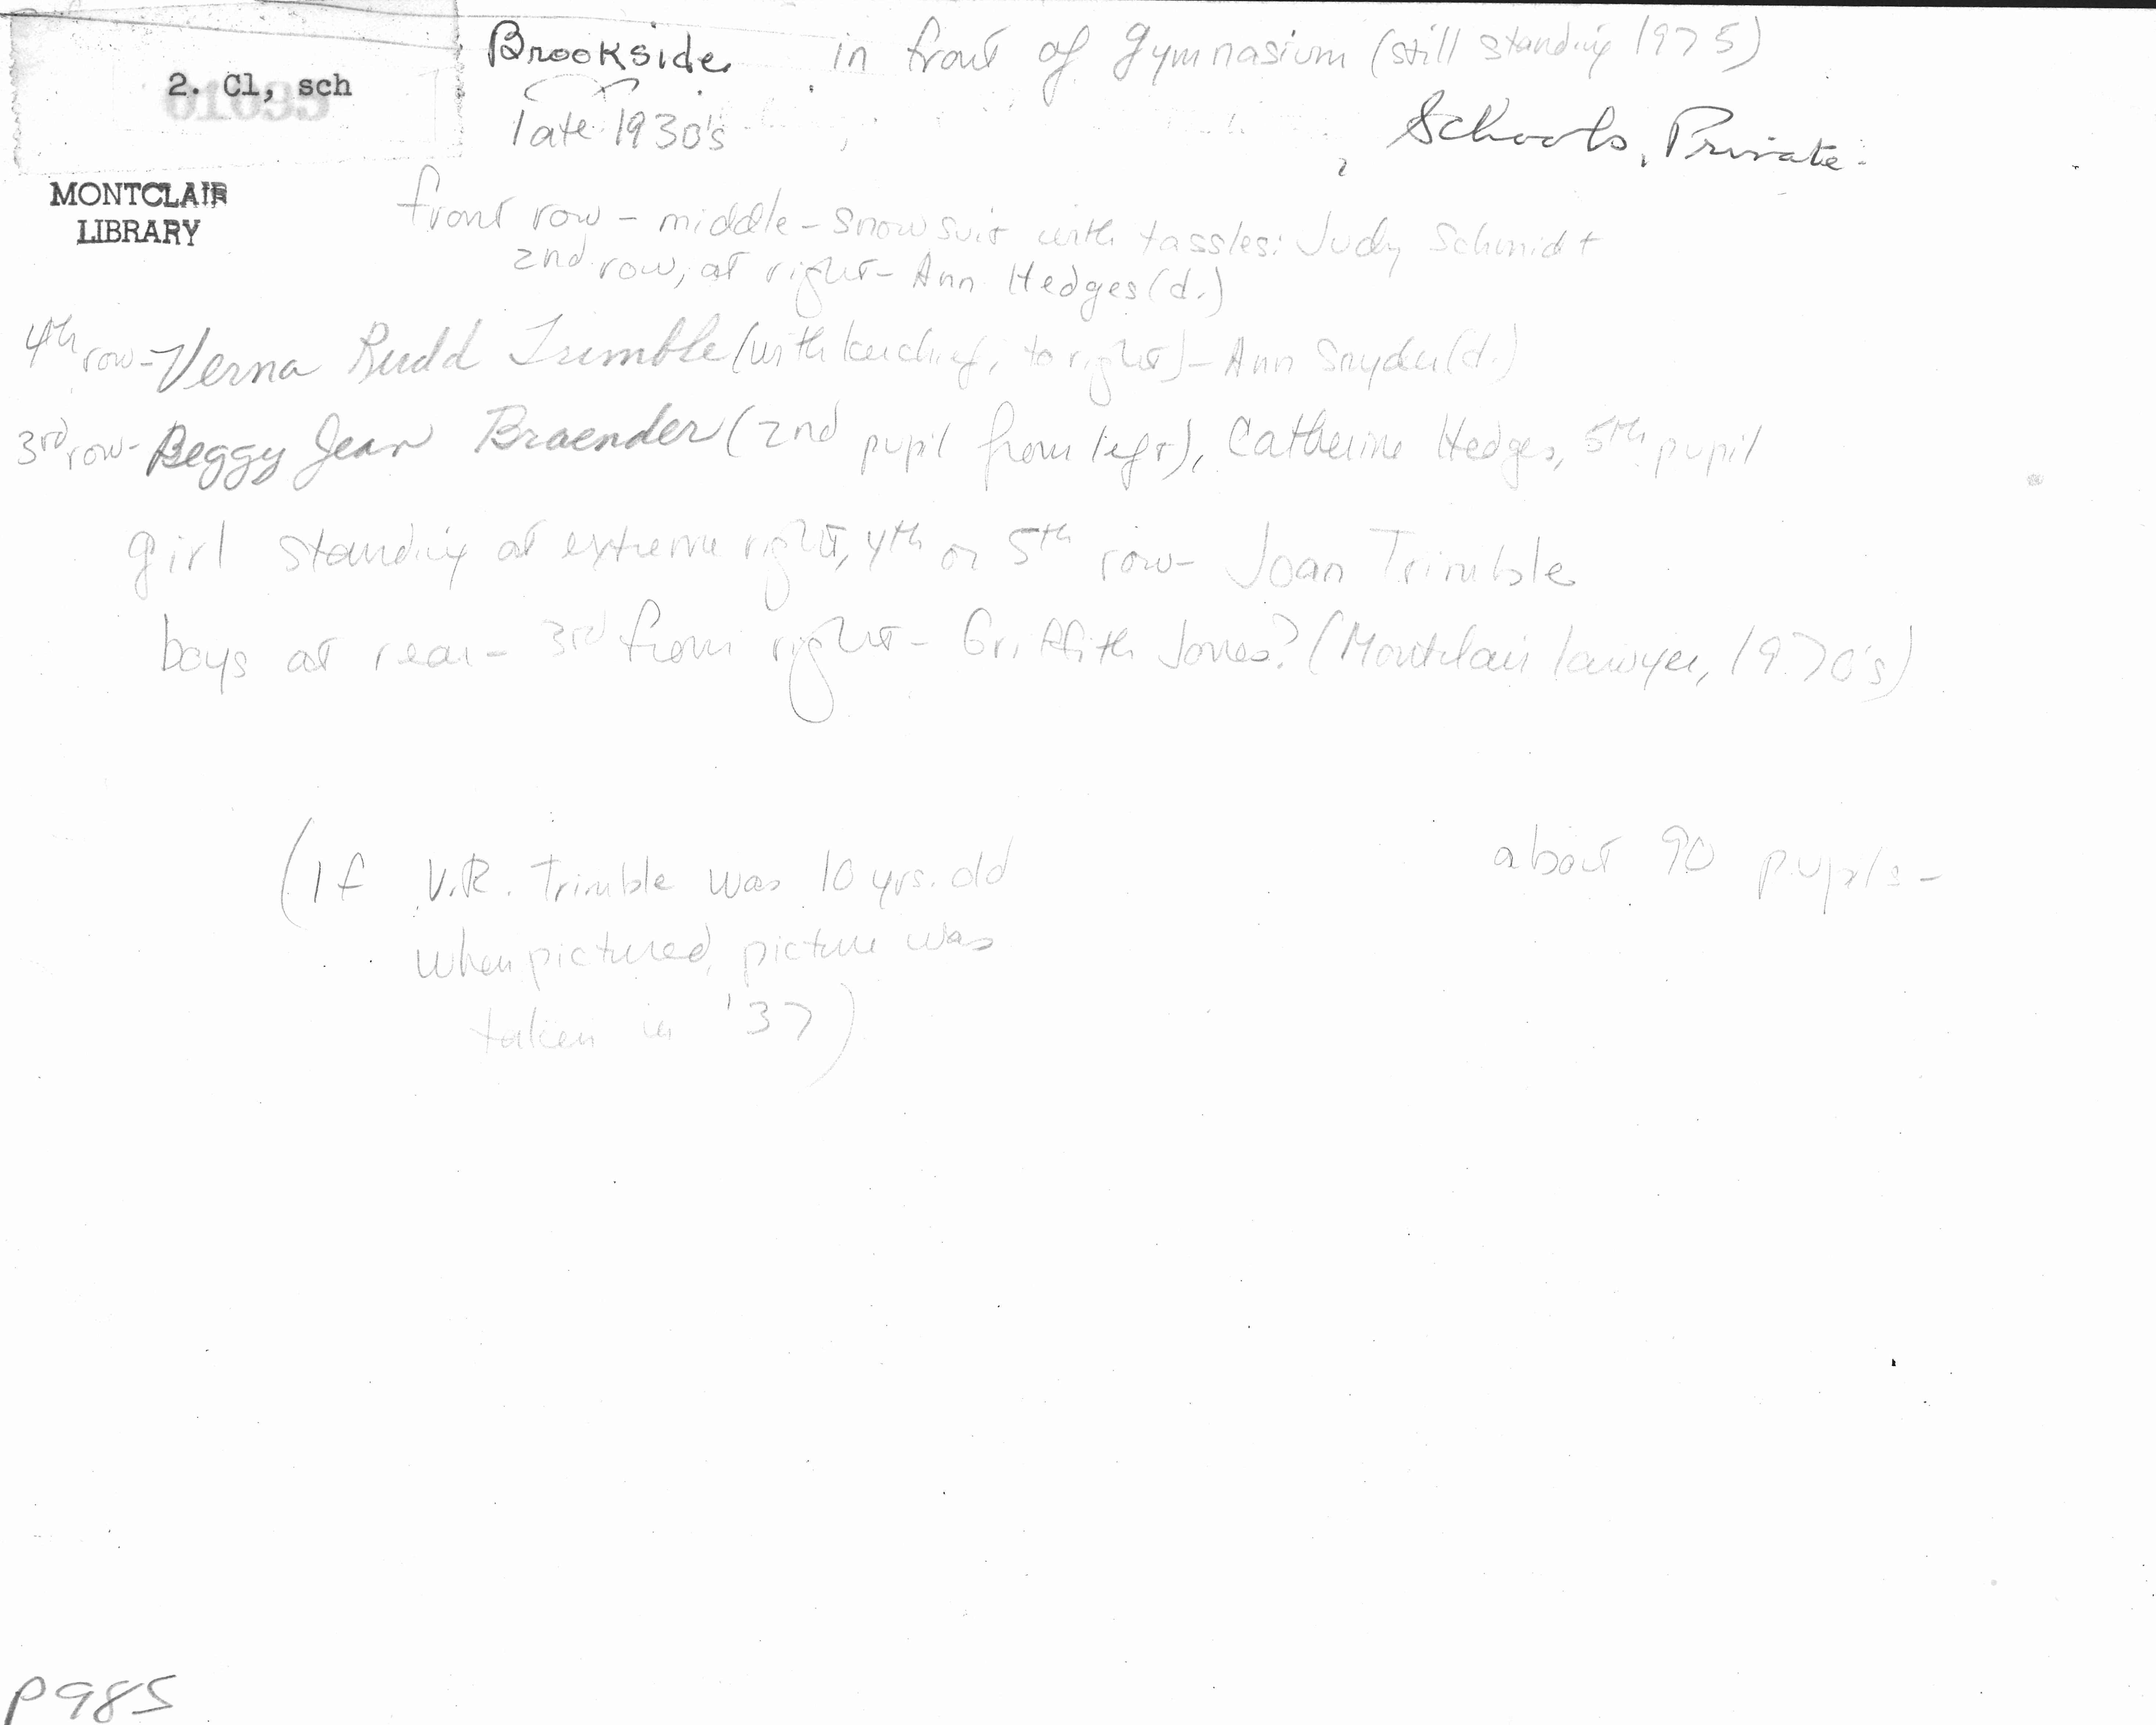 2. Cl, sch
01035
MONTCLAIR
LIBRARY
Brookside in front of gymnasium (still standing 1975)
late 1930's
Schools, Private
front row - middle - snowsuit with tassles: Judy Schmidt
2nd row, at right - Ann Hedges (d.)
4th row - Verna Rudd Trimble (with kerchief, to right) - Ann Snyder (d.)
3rd row - Peggy Jean Braender (2nd pupil from left), Catherine Hedges, 5th pupil
girl standing at extreme right, 4th or 5th row - Joan Trimble
boys at rear - 3rd from right - Griffith Jones? (Montclair lawyer, 1970's)
(If V.R. Trimble was 10 yrs. old
when pictured, picture was
taken in '37)
about 90 pupils -
P985